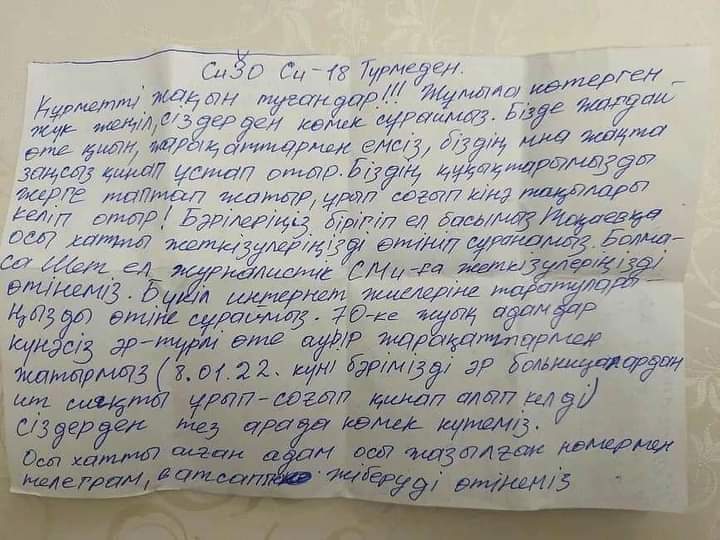 СиЗО Си-18 Түрмеден.
Құрметті жақын туғандар!!! Жұмыла көтерген
жүк жеңіл, сіздерден көмек сұраймыз. Бізде жағдай
өте қиын, жарақаттармен емсіз, біздің мна жақта
заңсыз қинап ұстап отыр. Біздің құқықтарымызды
жерге таптап жатыр, ұрып соғып кінә тақылары
келіп отыр! Бәрілеріңіз бірігіп ел басымыз Тоқаевқа
осы хатты жеткізулеріңізді өтініп сұранамыз. Болма-
са Шет ел журналистик СМи-ға жеткізулеріңізді
өтінеміз. Бүкіл интернет жислеріне таратулары-
ңызды өтіне сұраймыз. 70-ке жуық адамдар
күнәсіз әр-түрлі өте ауыр жарақаттармен
жатырмыз (8.01.22. күні бәрімізді әр больницалардан
ит сияқты ұрып-соғып қинап алып келді)
сіздерден тез арада көмек күтеміз.
Осы хатты алған адам осы жазылған номермен
телеграм, ватсап жіберуді өтінеміз